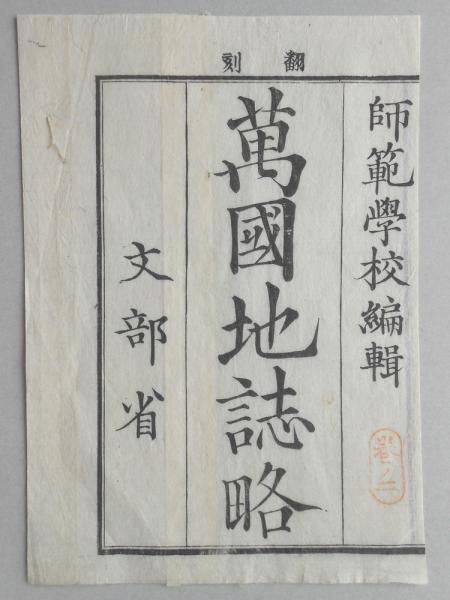 翻刻
師範學校編輯
卷ノ二
萬國地誌略
文部省